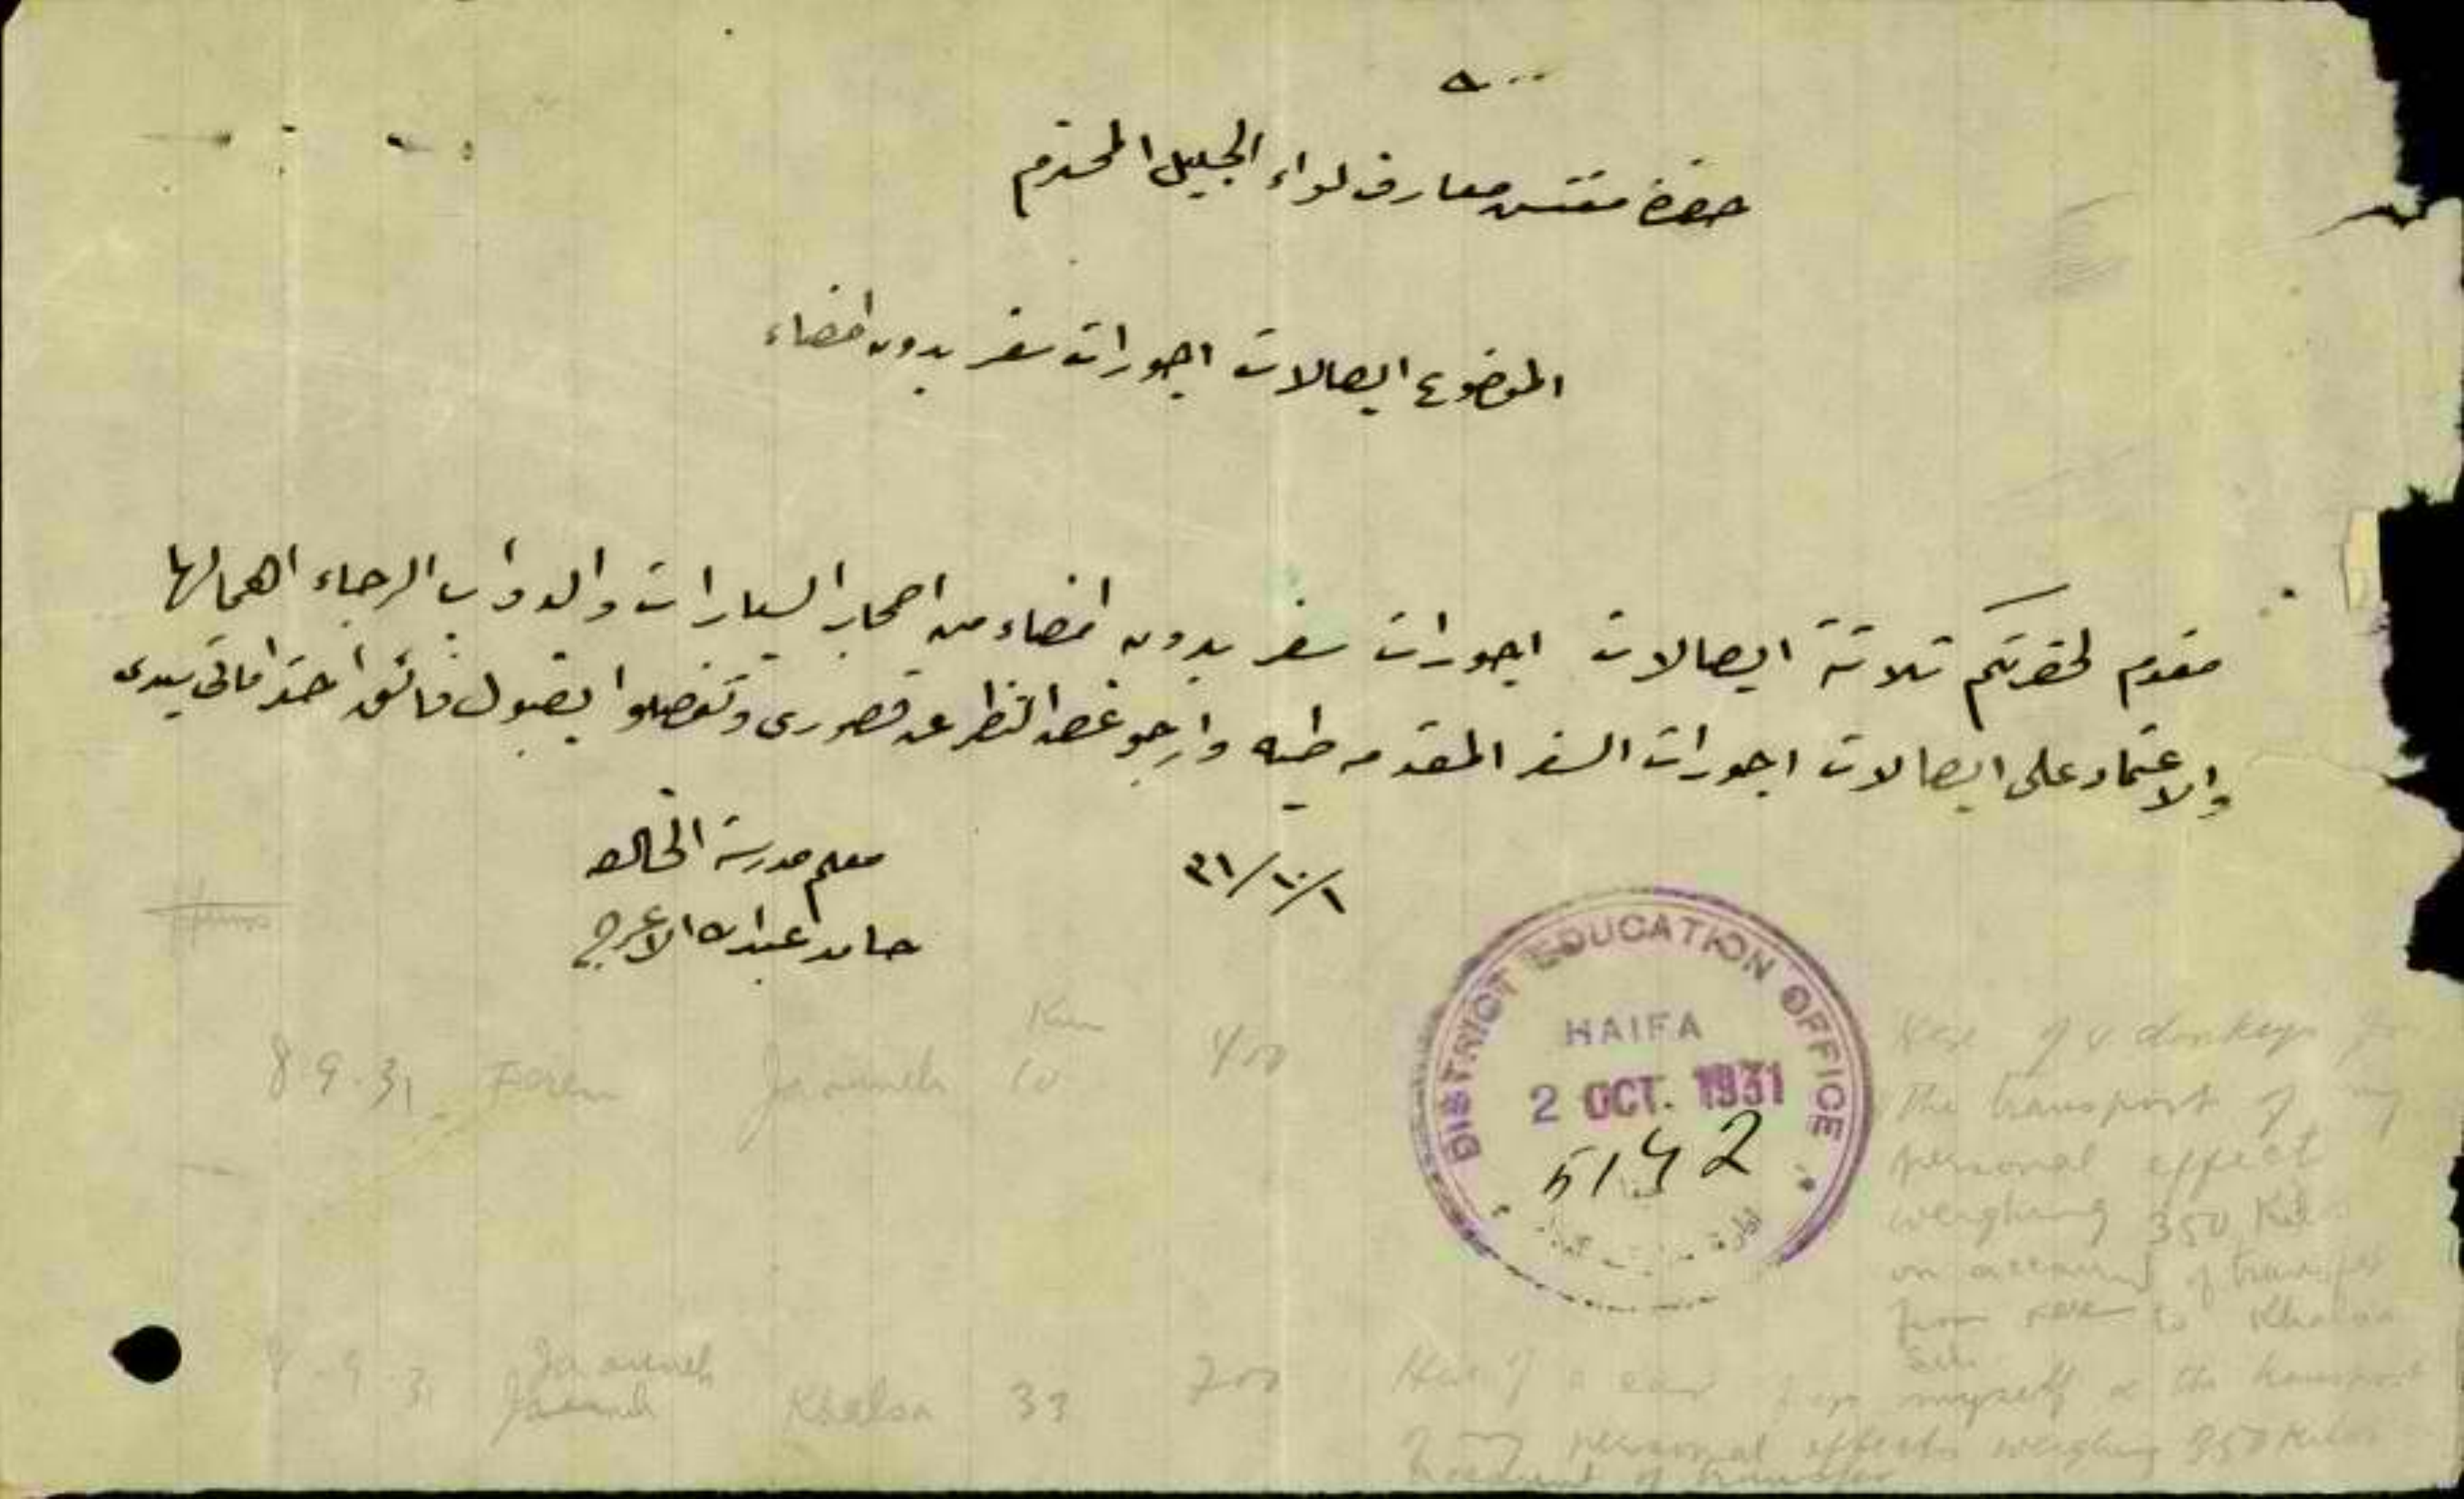 حضرة مفتش معارف لواء الجليل المحترم
الموضوع ايصالات اجورات سفر بدون امضاء
مقدم لحضرتكم ثلاثة ايصالات اجورات سفر بدون امضاء من اصحاب السيارات والدواب الرجاء اهمالها
والاعتماد على ايصالات اجورات السفر المقدمه طيه وارجو غض النظر عن قصوري وتفضلوا بقبول فائق احتراماتي سيدي
٣١/١٠/١
معلم مدرسة الخالصه
حامد عبدالله الاعرج
DISTRICT EDUCATION OFFICE
HAIFA
2 OCT. 1931
5142
8.9.31 Jaouneh Km 10 400
Hire of 4 donkeys for
the transport of my
personal effect
weighing 350 Kilos
on account of transfer
from to Khalsa
9.31 Jaouneh Khalsa 33 700
Hire of a car for myself & the transport
of my personal effects weighing 350 Kilos
account of transfer